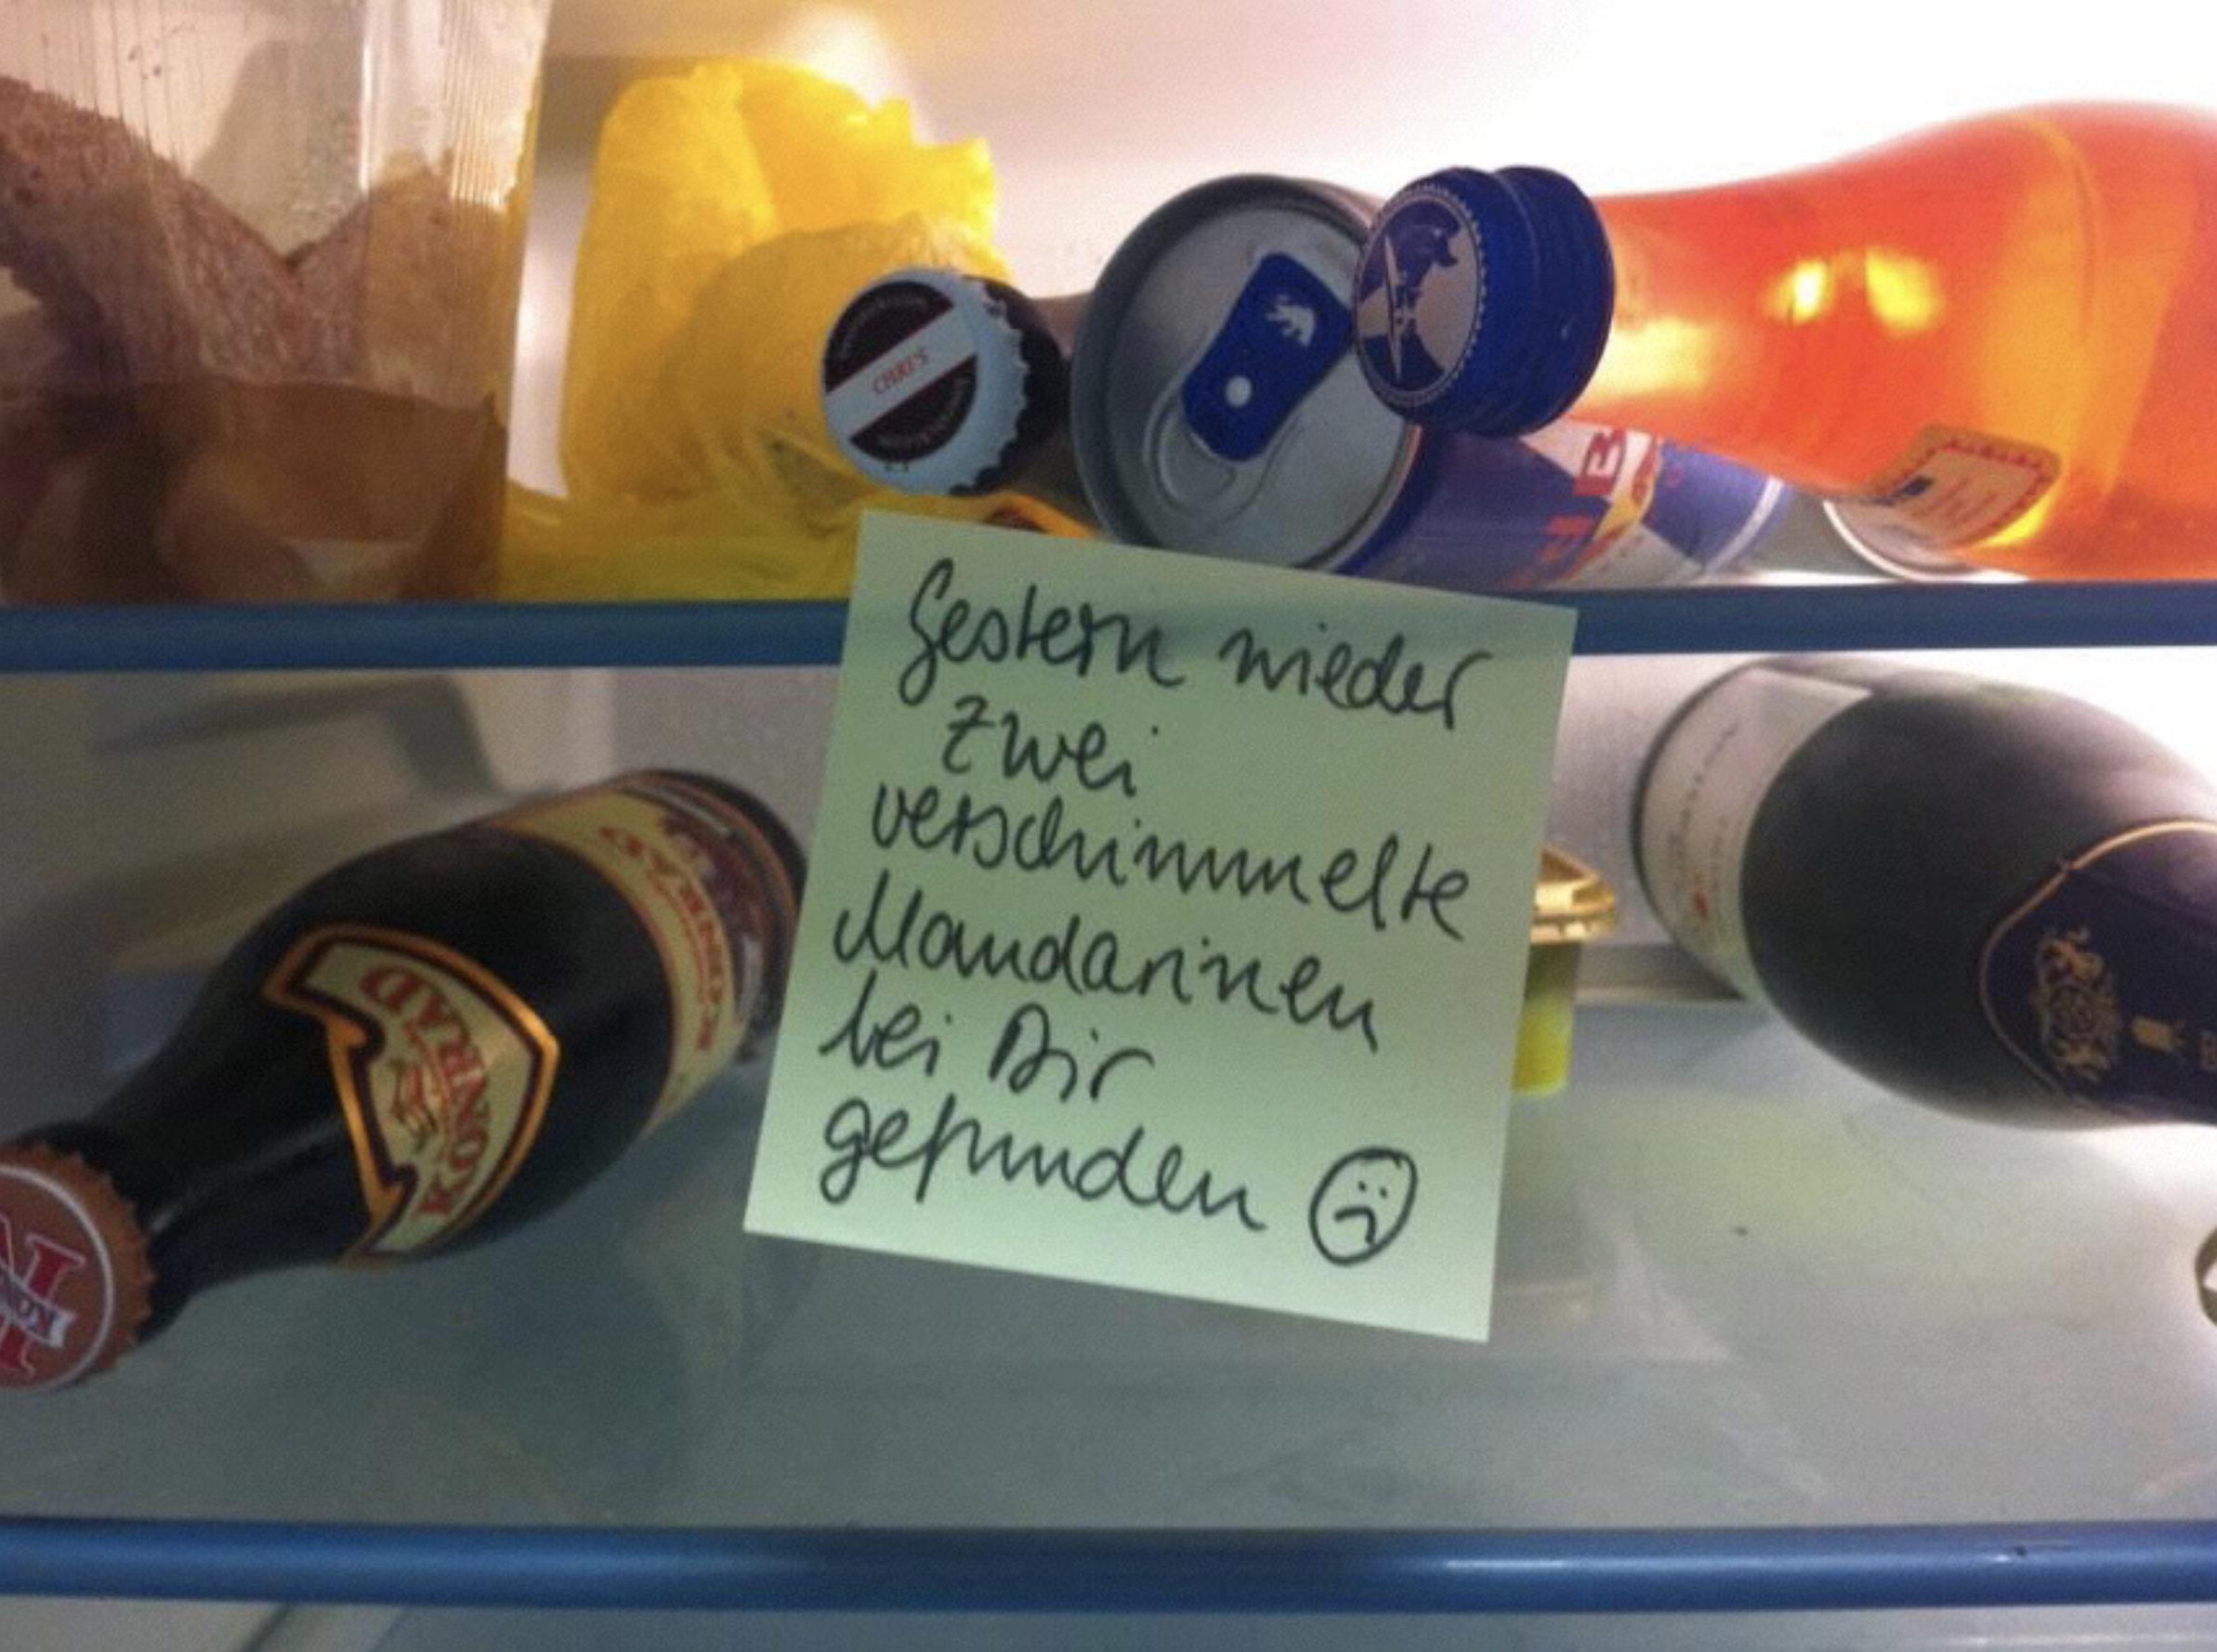 CHRIS
B
Gestern wieder
zwei
verschimmelte
Mandarinen
bei Dir
gefunden ☹
KONRAD
KONRAD